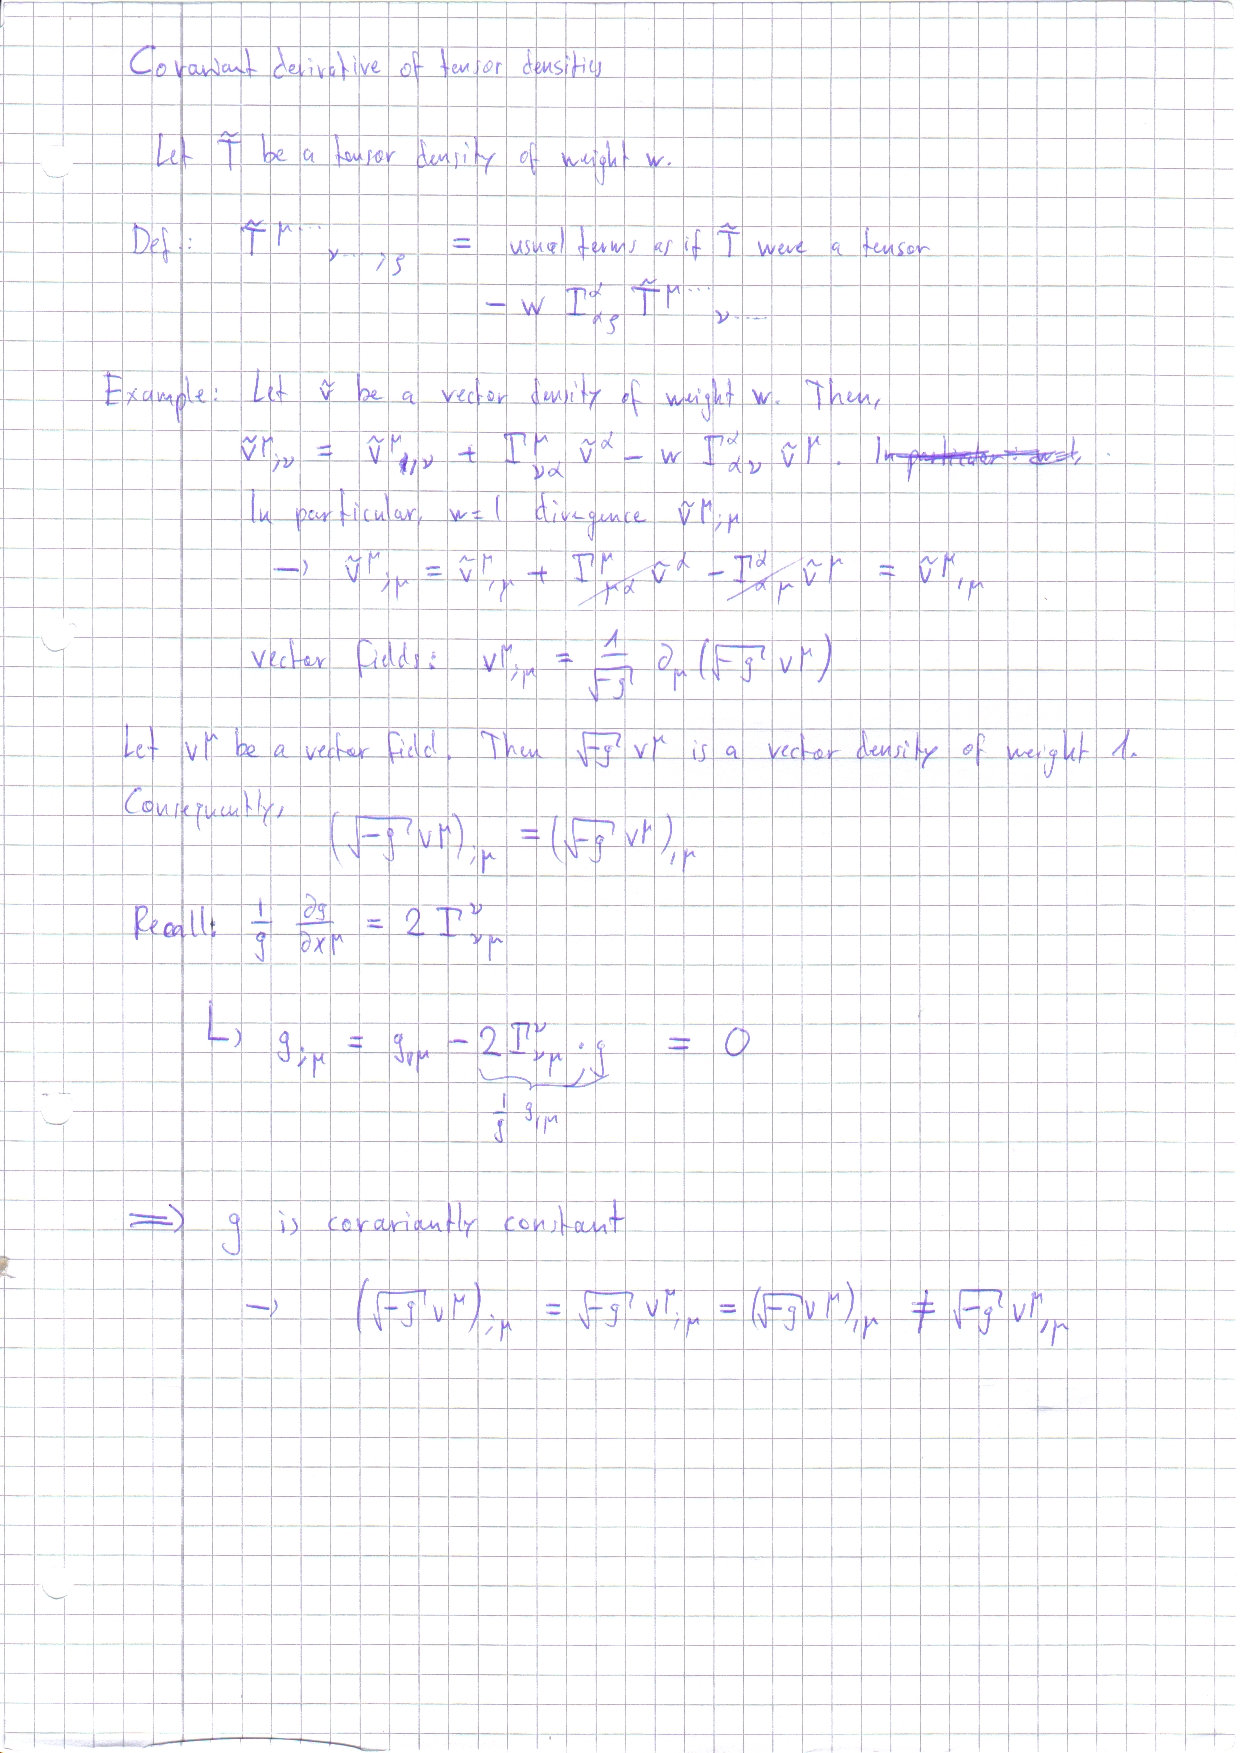 Covariant derivative of tensor densities
Let T̃ be a tensor density of weight w.
Def.: T̃^{μ...}_{ν...;ρ} = usual terms as if T̃ were a tensor
- w Γ^α_{αρ} T̃^{μ...}_{ν...}
Example: Let ṽ be a vector density of weight w. Then,
ṽ^μ_{;ν} = ṽ^μ_{,ν} + Γ^μ_{να} ṽ^α - w Γ^α_{αν} ṽ^μ.
In particular, w=1 divergence ṽ^μ_{;μ}
→ ṽ^μ_{;μ} = ṽ^μ_{,μ} + Γ^μ_{μα} ṽ^α - Γ^α_{αμ} ṽ^μ = ṽ^μ_{,μ}
vector fields: v^μ_{;μ} = 1/√-g ∂_μ (√-g v^μ)
Let v^μ be a vector field. Then √-g v^μ is a vector density of weight 1.
Consequently,
(√-g v^μ)_{;μ} = (√-g v^μ)_{,μ}
Recall: 1/g ∂g/∂x^μ = 2 Γ^ν_{νμ}
↳ g_{;μ} = g_{,μ} - 2 Γ^ν_{νμ} · g = 0
1/g g_{,μ}
⟹ g is covariantly constant
→ (√-g v^μ)_{;μ} = √-g v^μ_{;μ} = (√-g v^μ)_{,μ} ≠ √-g v^μ_{,μ}